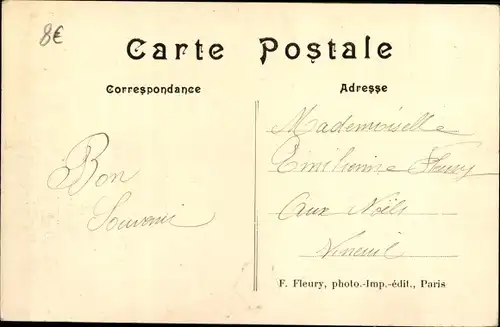 8€
Carte Postale
Correspondance
Adresse
Bon
Souvenir
Mademoiselle
Emilienne Fleury
Aux Noëls
Vineuil
F. Fleury, photo.-Imp.-édit., Paris